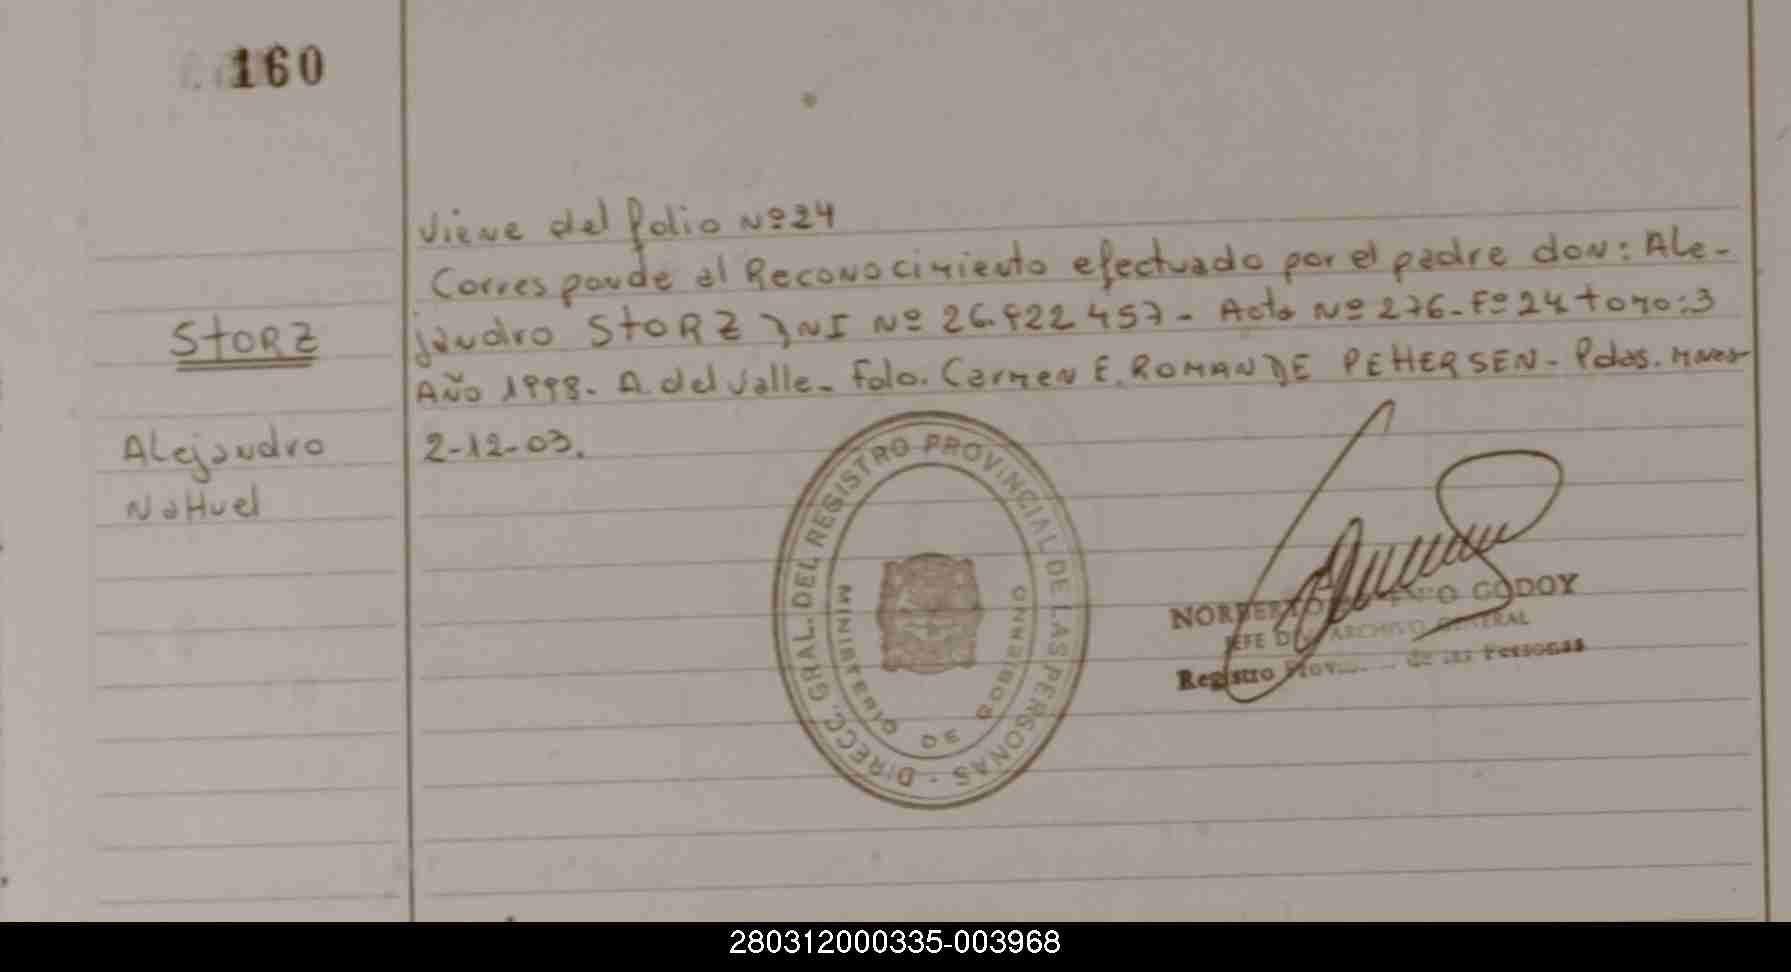 160
Viene del folio Nº 24
Corresponde al Reconocimiento efectuado por el padre don: Ale-
jandro STORZ DNI Nº 26.922 457- Acta Nº 276- Fº 24 tomo: 3
STORZ
Año 1998- A. del Valle- Fdo. Carmen E. ROMAN DE PEHERSEN- Pdas. Mnes
Alejandro
2-12-03.
NaHuel
DIRECC. GRAL. DEL REGISTRO PROVINCIAL DE LAS PERSONAS -
MINISTERIO DE GOBIERNO
NORBERTO GODOY
JEFE DEL ARCHIVO GENERAL
Registro de las Personas
280312000335-003968